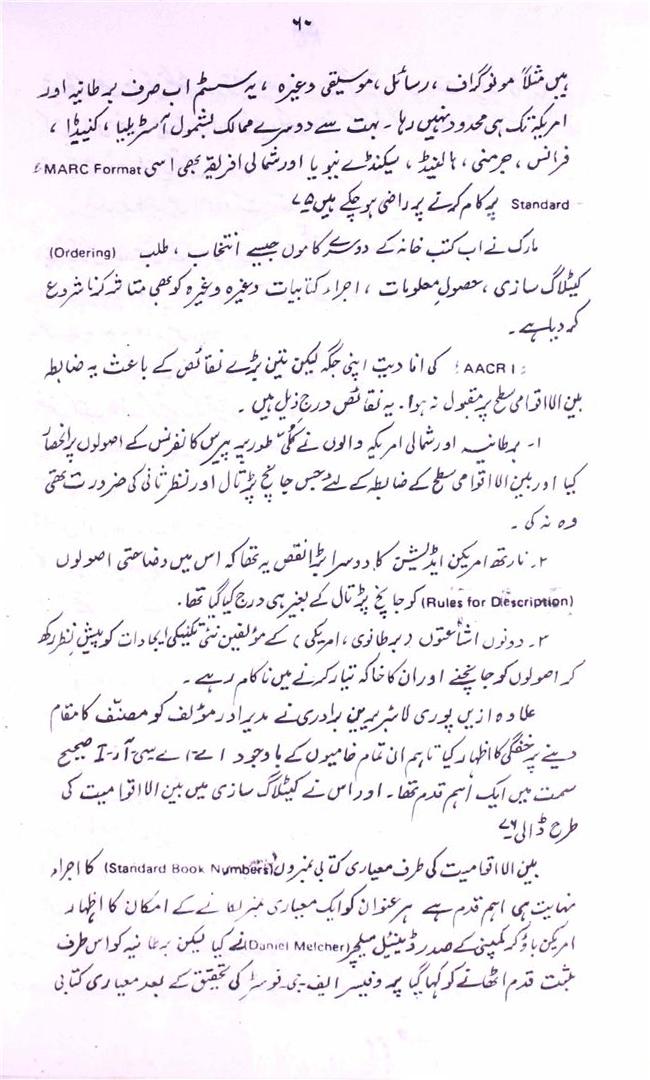 ۶۰
ہیں مثلاً مونوگراف، رسائل، موسیقی وغیرہ، یہ سسٹم اب صرف برطانیہ اور
امریکہ تک ہی محدود نہیں رہا۔ بہت سے دوسرے ممالک بشمول آسٹریلیا، کنیڈا،
فرانس، جرمنی، ہالینڈ، سیکنڈے نیویا اور شمالی افریقہ بھی اسی MARC Format
Standard پر کام کرنے پر راضی ہو چکے ہیں ۷۵
مارک نے اب کتب خانہ کے دوسرے کاموں جیسے انتخاب، طلب (Ordering)
کیٹلاگ سازی، حصول معلومات، اجراء کتابیات وغیرہ وغیرہ کو بھی متاثر کرنا شروع
کر دیا ہے۔
AACR I کی افادیت اپنی جگہ لیکن تین بڑے نقائص کے باعث یہ ضابطہ
بین الاقوامی سطح پر مقبول نہ ہوا۔ یہ نقائص درج ذیل ہیں۔
۱۔ برطانیہ اور شمالی امریکہ والوں نے کلی طور پر پیرس کانفرنس کے اصولوں پر انحصار
کیا اور بین الاقوامی سطح کے ضابطہ کے لئے جس جانچ پڑتال اور نظر ثانی کی ضرورت تھی
وہ نہ کی۔
۲۔ نارتھ امریکن ایڈیشن کا دوسرا بڑا نقص یہ تھا کہ اس میں وضاحتی اصولوں
(Rules for Description) کو جانچ پڑتال کے بغیر ہی درج کیا گیا تھا۔
۳۔ دونوں اشاعتوں (برطانوی، امریکی) کے مؤلفین نئی تکنیکی ایجادات کو پیش نظر رکھ
کر اصولوں کو جانچنے اور ان کا خاکہ تیار کرنے میں ناکام رہے۔
علاوہ ازیں پوری لائبریرین برادری نے مدیر اور مؤلف کو مصنف کا مقام
دینے پر خفگی کا اظہار کیا تاہم ان تمام خامیوں کے باوجود اے۔اے۔سی۔آر۔I صحیح
سمت میں ایک اہم قدم تھا۔ اور اس نے کیٹلاگ سازی میں بین الاقوامیت کی
طرح ڈالی ۷۶
بین الاقوامیت کی طرف معیاری کتابی نمبروں (Standard Book Numbers) کا اجراء
نہایت ہی اہم قدم ہے ہر عنوان کو ایک معیاری نمبر لگانے کے امکان کا اظہار
امریکن باؤکر کمپنی کے صدر ڈینئل میلچر (Daniel Melcher) نے کیا لیکن برطانیہ کو اس طرف
مثبت قدم اٹھانے کو کہا گیا پروفیسر ایف۔جی۔فوسٹر کی تحقیق کے بعد معیاری کتابی